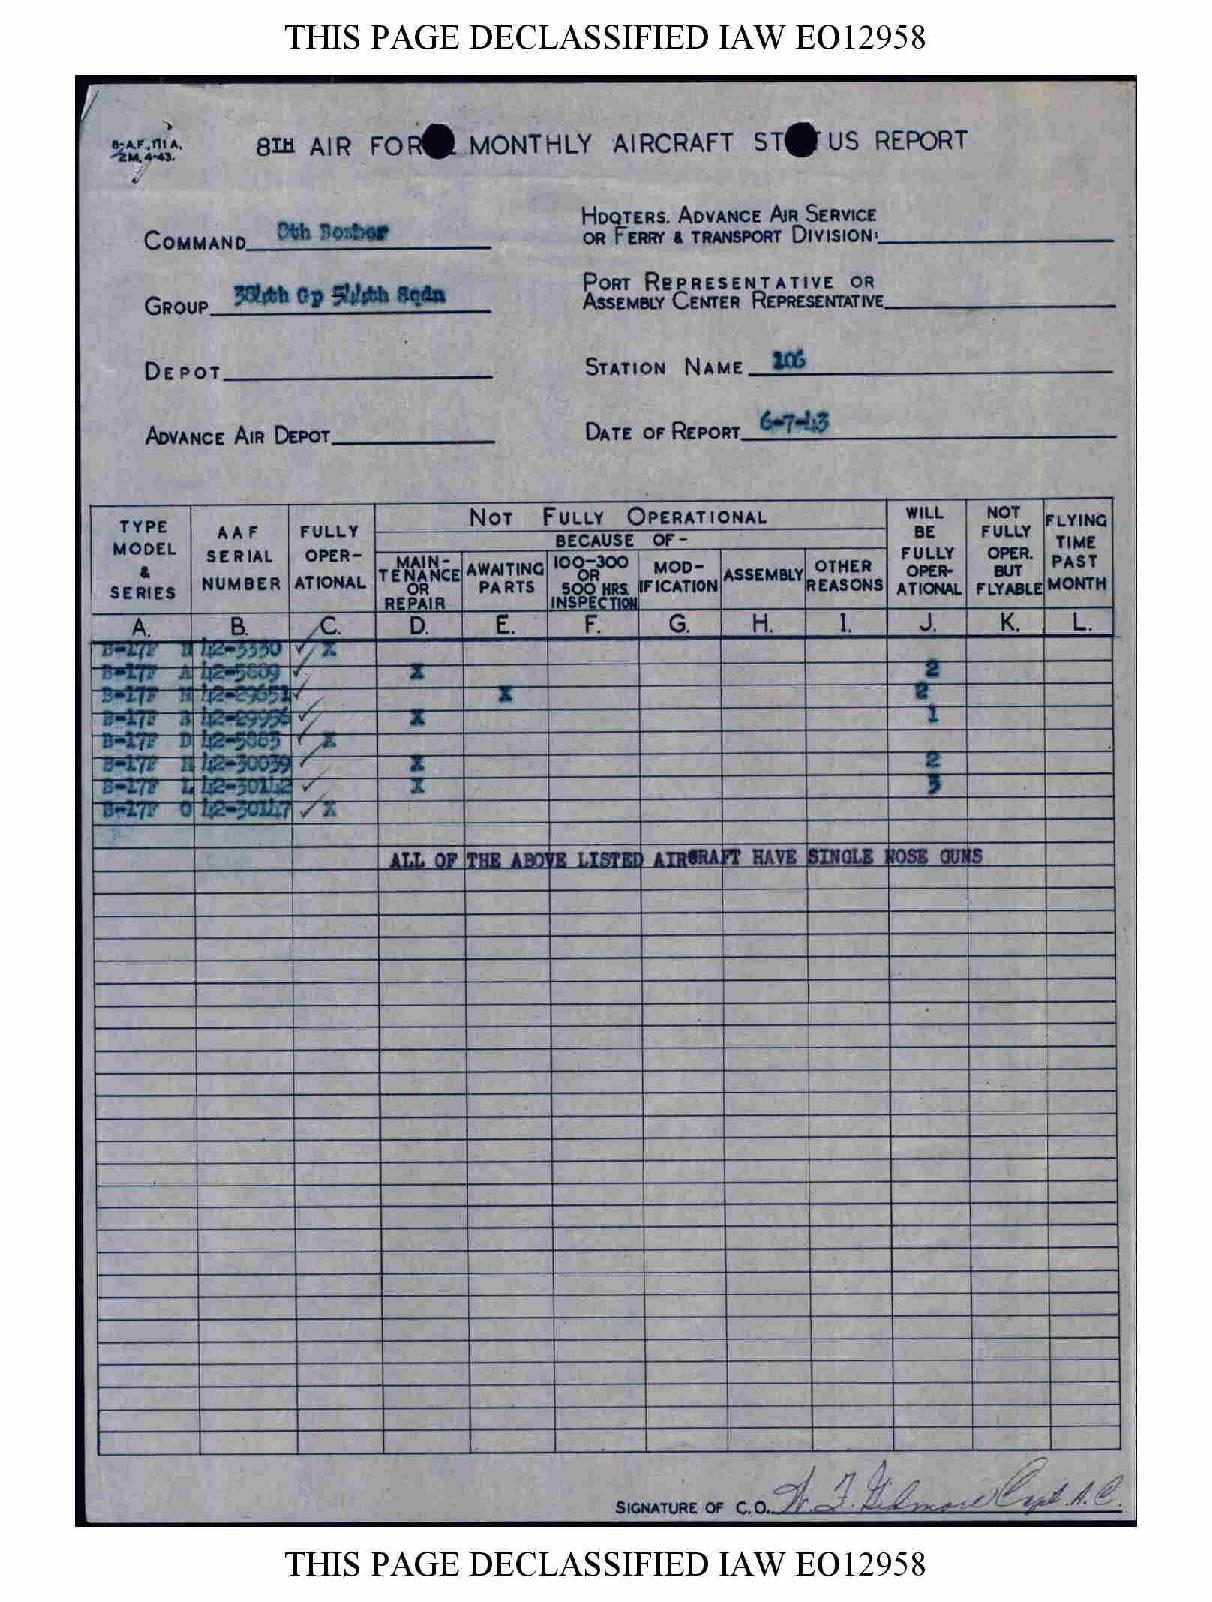 THIS PAGE DECLASSIFIED IAW EO12958
8-A.F., 111A.
2M, 4-43.
8TH AIR FOR MONTHLY AIRCRAFT ST US REPORT
COMMAND 8th Bomber
HDQTERS. ADVANCE AIR SERVICE
OR FERRY & TRANSPORT DIVISION:
GROUP 384th Gp 544th Sqdn
PORT REPRESENTATIVE OR
ASSEMBLY CENTER REPRESENTATIVE
DEPOT
STATION NAME 106
ADVANCE AIR DEPOT
DATE OF REPORT 6-7-43
TYPE MODEL & SERIES
AAF SERIAL NUMBER
FULLY OPER-ATIONAL
NOT FULLY OPERATIONAL
BECAUSE OF -
MAIN-TENANCE OR REPAIR
AWAITING PARTS
100-300 OR 500 HRS. INSPECTION
MOD-IFICATION
ASSEMBLY
OTHER REASONS
WILL BE FULLY OPER-ATIONAL
NOT FULLY OPER. BUT FLYABLE
FLYING TIME PAST MONTH
A. B. C. D. E. F. G. H. I. J. K. L.
B-17F 42-3330 ✓ X
B-17F A 42-5809 ✓ X 2
B-17F 42-29651 ✓ X 2
B-17F 42-29956 ✓ X 1
B-17F D 42-5883 ✓ X
B-17F 42-30039 ✓ X 2
B-17F L 42-30142 ✓ X 3
B-17F O 42-30147 ✓ X
ALL OF THE ABOVE LISTED AIRCRAFT HAVE SINGLE NOSE GUNS
SIGNATURE OF C.O. W. F. Gilmore Capt A.C.
THIS PAGE DECLASSIFIED IAW EO12958